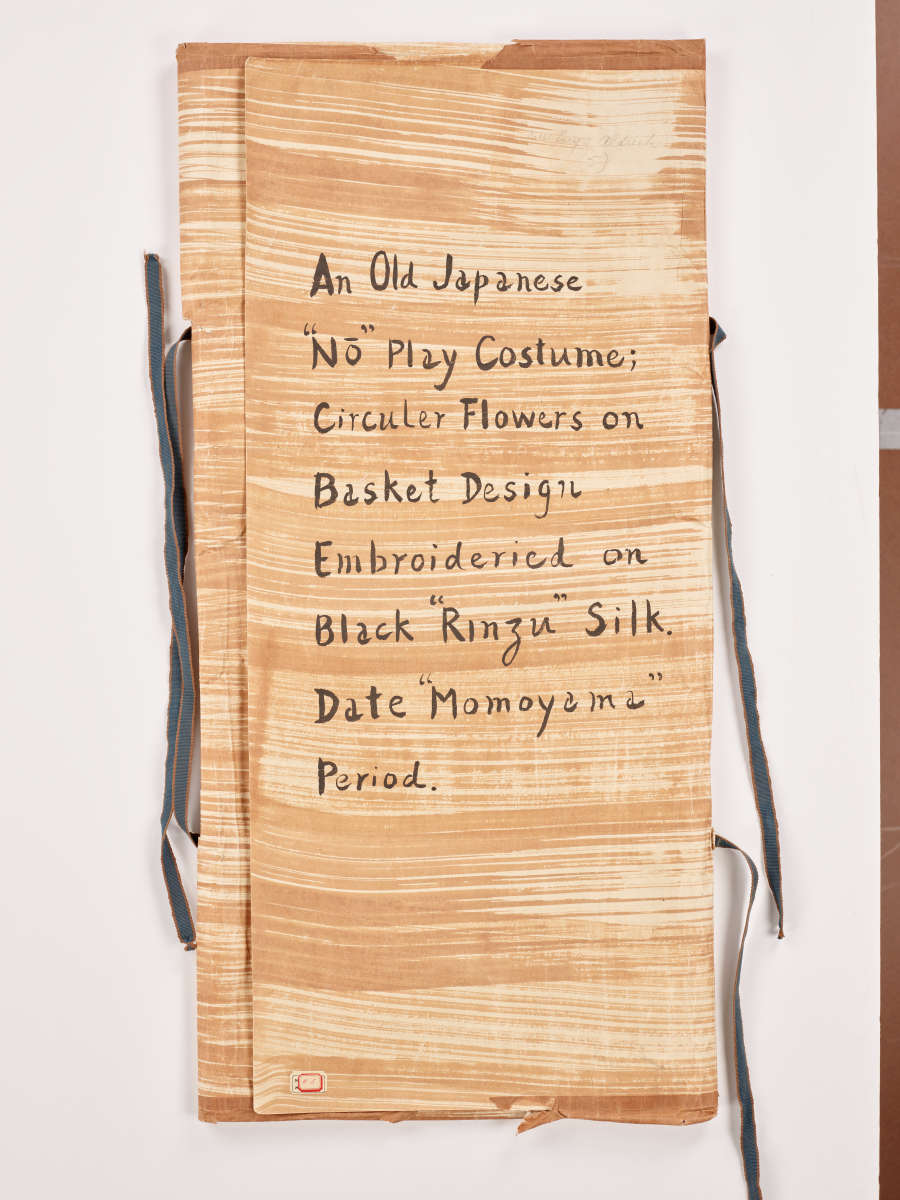 An Old Japanese
"Nō" Play Costume;
Circuler Flowers on
Basket Design
Embroideried on
Black "Rinzu" Silk.
Date "Momoyama"
Period.